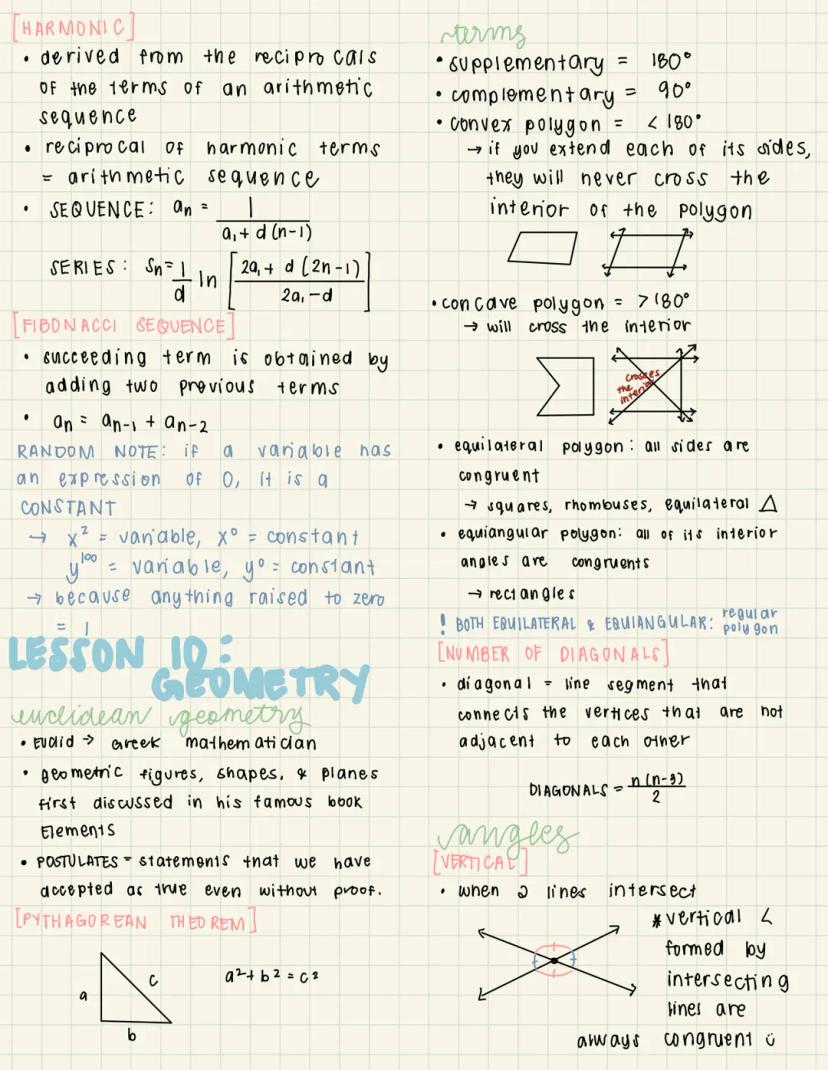 [HARMONIC]
• derived from the reciprocals
of the terms of an arithmetic
sequence
• reciprocal of harmonic terms
= arithmetic sequence
• SEQUENCE: aₙ = 1 / a₁ + d (n-1)
SERIES: Sₙ = 1/d ln [2a₁ + d (2n-1) / 2a₁ - d]
[FIBONACCI SEQUENCE]
• succeeding term is obtained by
adding two previous terms
• aₙ = aₙ₋₁ + aₙ₋₂
RANDOM NOTE: if a variable has
an expression of 0, it is a
CONSTANT
→ x² = variable, x⁰ = constant
y¹⁰⁰ = variable, y⁰ = constant
→ because anything raised to zero
= 1
LESSON 10:
GEOMETRY
euclidean geometry
• Euclid → Greek mathematician
• geometric figures, shapes, & planes
first discussed in his famous book
Elements
• POSTULATES = statements that we have
accepted as true even without proof.
[PYTHAGOREAN THEOREM]
a
c
b
a² + b² = c²
terms
• supplementary = 180°
• complementary = 90°
• convex polygon = < 180°
→ if you extend each of its sides,
they will never cross the
interior of the polygon
• concave polygon = > 180°
→ will cross the interior
crosses
the
interior
• equilateral polygon: all sides are
congruent
→ squares, rhombuses, equilateral △
• equiangular polygon: all of its interior
angles are congruents
→ rectangles
! BOTH EQUILATERAL & EQUIANGULAR: regular
polygon
[NUMBER OF DIAGONALS]
• diagonal = line segment that
connects the vertices that are not
adjacent to each other
DIAGONALS = n (n-3) / 2
angles
[VERTICAL]
• when 2 lines intersect
* vertical <
formed by
intersecting
lines are
always congruent ü